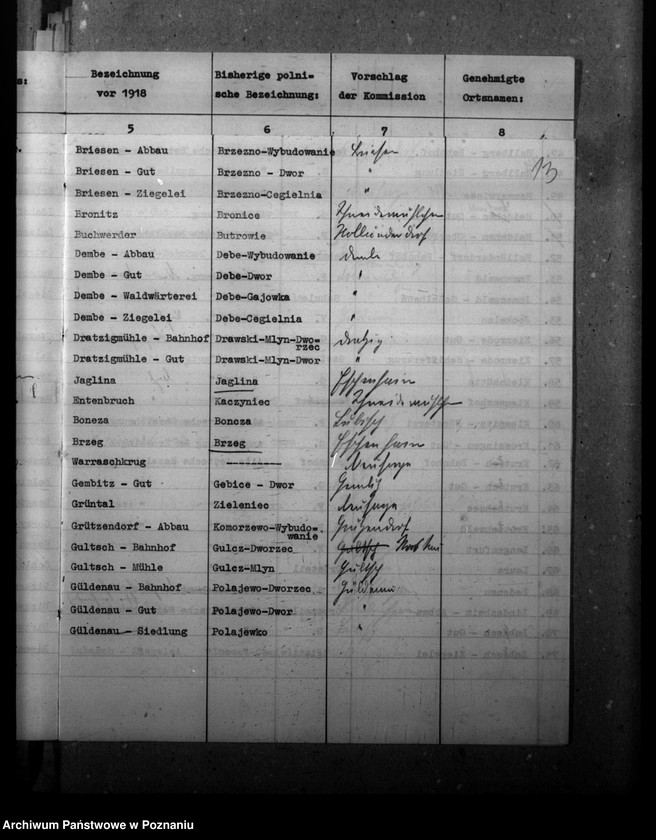 Bezeichnung vor 1918
Bisherige polni-
sche Bezeichnung:
Vorschlag
der Kommission
Genehmigte
Ortsnamen:
5 6 7 8
13
Briesen - Abbau Brzezno-Wybudowanie Briesen
Briesen - Gut Brzezno - Dwor "
Briesen - Ziegelei Brzezno-Cegielnia "
Bronitz Bronice Schneidemühlchen
Buchwerder Butrowie Holländerdorf
Dembe - Abbau Debe-Wybudowanie Dembe
Dembe - Gut Debe-Dwor "
Dembe - Waldwärterei Debe-Gajowka "
Dembe - Ziegelei Debe-Cegielnia "
Dratzigmühle - Bahnhof Drawski-Mlyn-Dwo-
rzec
Dratzigmühle - Gut Drawski-Mlyn-Dwor "
Jaglina Jaglina Eschenhain
Entenbruch Kaczyniec Schneidemühlchen
Boneza Boncza Lubasch
Brzeg Brzeg Eschenhain
Warraschkrug ---------- Neusorge
Gembitz - Gut Gebice - Dwor Gembitz
Grüntal Zieleniec Neusorge
Grützendorf - Abbau Komorzewo-Wybudo-
wanie Grützendorf
Gultsch - Bahnhof Gulcz-Dworzec Gultsch
Gultsch - Mühle Gulcz-Mlyn Gultsch
Güldenau - Bahnhof Polajewo-Dworzec Güldenau
Güldenau - Gut Polajewo-Dwor "
Güldenau - Siedlung Polajewko "
Archiwum Państwowe w Poznaniu